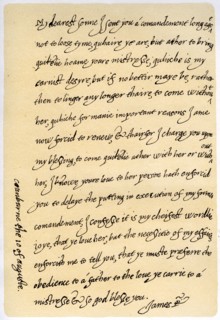 My dearest sonne I sent you a comandement long ago
not to lose tyme, quhaire ye are, but ather to bring
quikelie hoame youre mistresse, quhiche is my
earnist desyre, but if no bettir maye be, rather
then to linger any longer thaire, to come without
her, quhiche for manie important reasons I ame
now forcid to renew, & thairfor I charge you upon
my blessing to come quikelie ather with her or with
out her, I knowe youre love to her person hath enforcid
you to delaye the putting in execution of my former
comandement, I confesse it is my cheifest worldlie
joye, that ye love her, but the necessitie of my effaires
enforcith me to tell you, that ye muste preferre the
obedience to a father to the love ye carrie to a
mistresse & so god blesse you.
James R
cranburne the 10 of auguste.